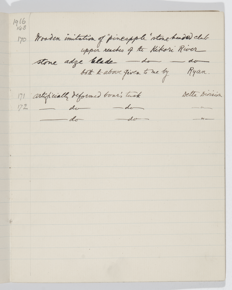 1916
170 Wooden imitation of 'pineapple' stone headed club
upper reaches of the Kikori River
stone adze blade — do — — do
both to above given to me by Ryan
171 artificially deformed boar's tusk Delta Division
172 — do — do — "
— do — do — "